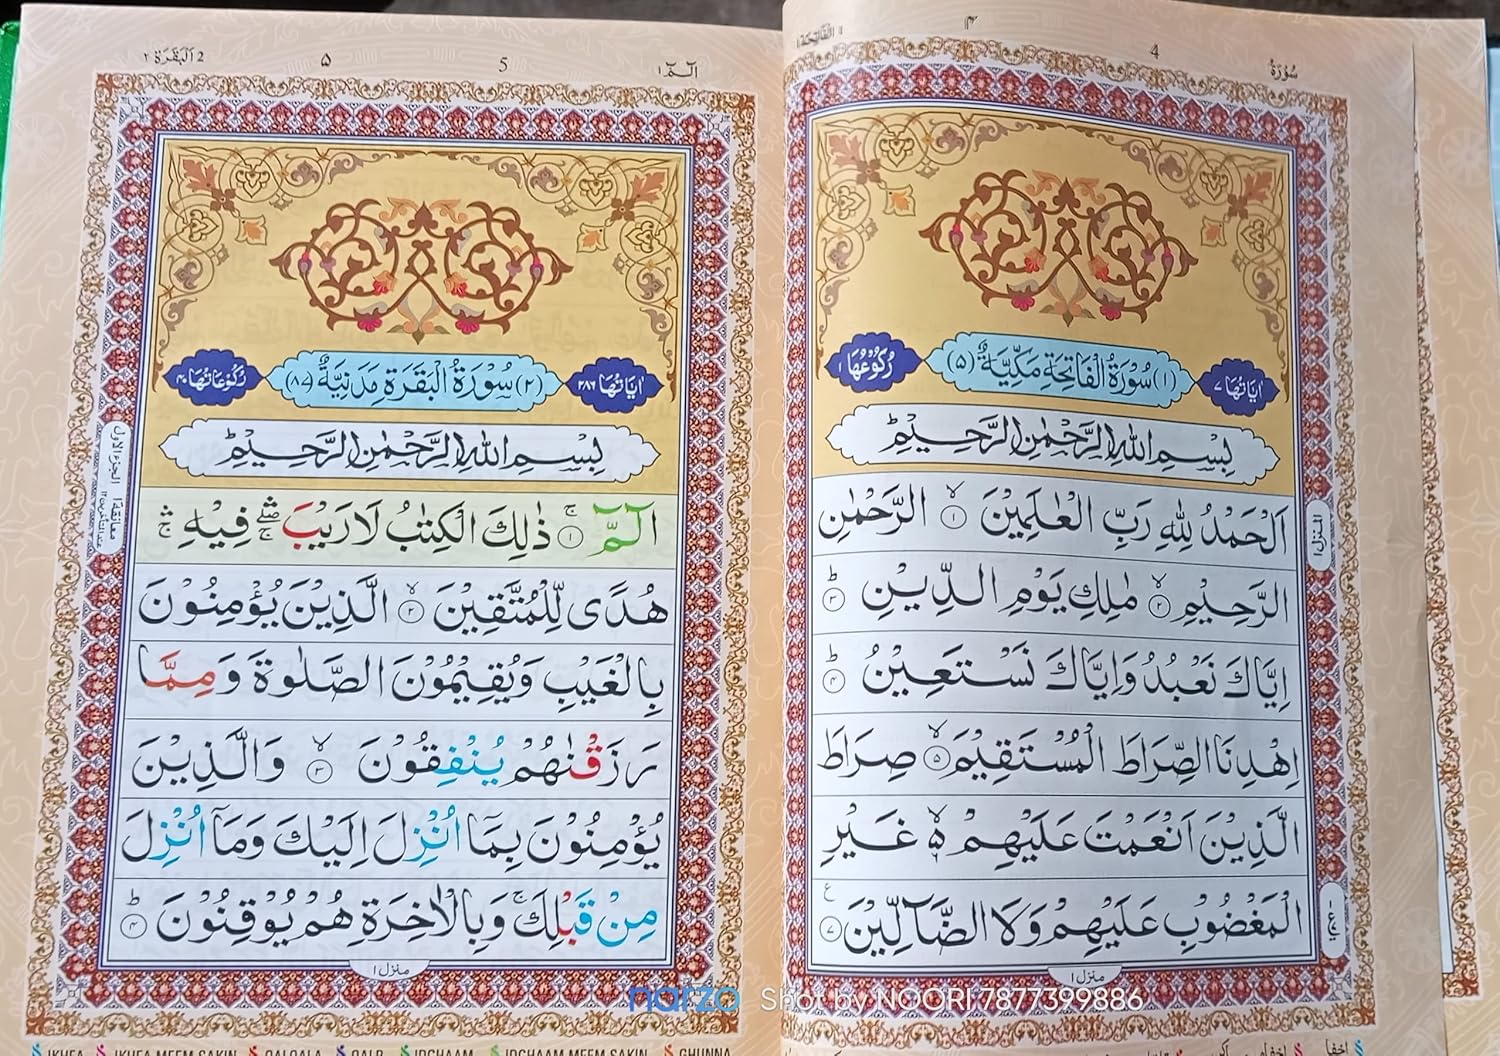 سُوْرَةُ
4
۴
الفَاتِحَة ١
رُكُوْعُهَا ١
(١) سُوْرَةُ الْفَاتِحَةِ مَكِّيَّةٌ (٥)
اٰيَاتُهَا ٧
بِسْمِ اللّٰهِ الرَّحْمٰنِ الرَّحِيْمِ
اَلْحَمْدُ لِلّٰهِ رَبِّ الْعٰلَمِيْنَ ۙ ١ الرَّحْمٰنِ
الرَّحِيْمِ ۙ ٢ مٰلِكِ يَوْمِ الدِّيْنِ ؕ ٣
اِيَّاكَ نَعْبُدُ وَاِيَّاكَ نَسْتَعِيْنُ ؕ ٤
اِهْدِنَا الصِّرَاطَ الْمُسْتَقِيْمَ ۙ ٥ صِرَاطَ
الَّذِيْنَ اَنْعَمْتَ عَلَيْهِمْ ۙ٦ غَيْرِ
الْمَغْضُوْبِ عَلَيْهِمْ وَلَا الضَّآلِّيْنَ ٧
منزل ١
المنزل ١
الٓمّٓ ١
5
۵
2 اَلْبَقَرَة ٢
اٰيَاتُهَا ٢٨٦
(٢) سُوْرَةُ الْبَقَرَةِ مَدَنِيَّةٌ (٨٧)
رُكُوْعَاتُهَا ٤٠
بِسْمِ اللّٰهِ الرَّحْمٰنِ الرَّحِيْمِ
الٓمّٓ ۚ ١ ذٰلِكَ الْكِتٰبُ لَا رَيْبَ ۛۖۚ فِيْهِ ۛۚ
هُدًى لِّلْمُتَّقِيْنَ ۙ ٢ الَّذِيْنَ يُؤْمِنُوْنَ
بِالْغَيْبِ وَيُقِيْمُوْنَ الصَّلٰوةَ وَمِمَّا
رَزَقْنٰهُمْ يُنْفِقُوْنَ ۙ ٣ وَالَّذِيْنَ
يُؤْمِنُوْنَ بِمَآ اُنْزِلَ اِلَيْكَ وَمَآ اُنْزِلَ
مِنْ قَبْلِكَ ۚ وَبِالْاٰخِرَةِ هُمْ يُوْقِنُوْنَ ؕ ٤
منزل ١
معانقة ١ الجزء الاول
عند المتأخرين ١٢
narzo Shot by NOORI 7877399886
IKHFA IKHFA MEEM SAKIN QALQALA QALB IDGHAAM IDGHAAM MEEM SAKIN GHUNNA
اخفا